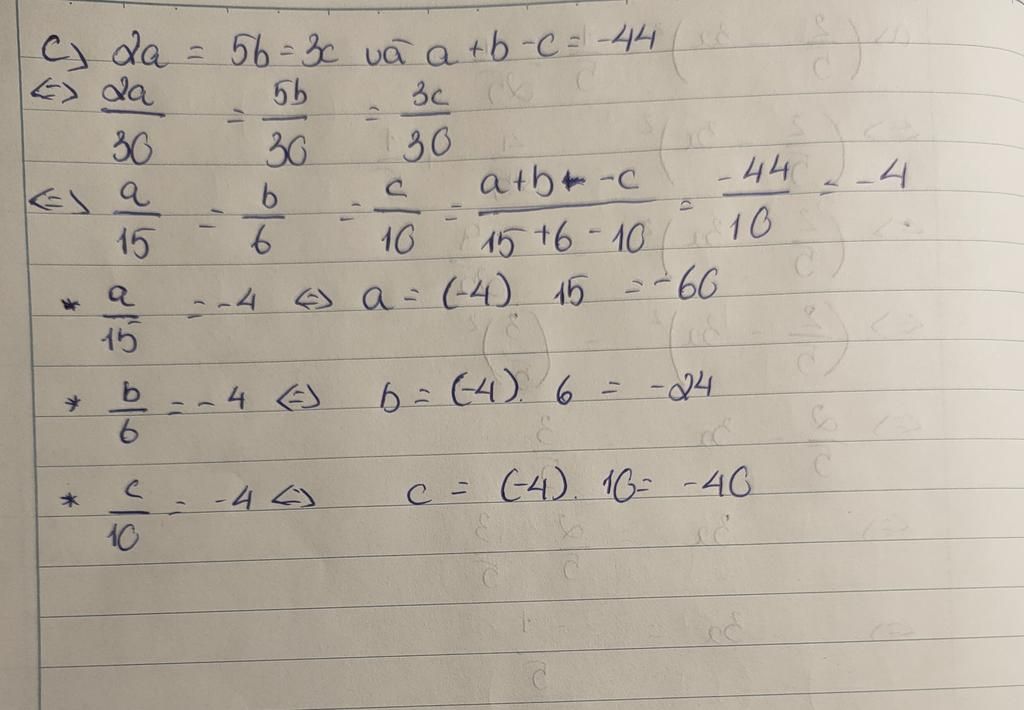 c) 2a = 5b = 3c và a + b - c = -44
<=> 2a/30 = 5b/30 = 3c/30
<=> a/15 = b/6 = c/10 = (a+b-c)/(15+6-10) = -44/10 = -4
* a/15 = -4 <=> a = (-4). 15 = -60
* b/6 = -4 <=> b = (-4). 6 = -24
* c/10 = -4 <=> c = (-4). 10 = -40